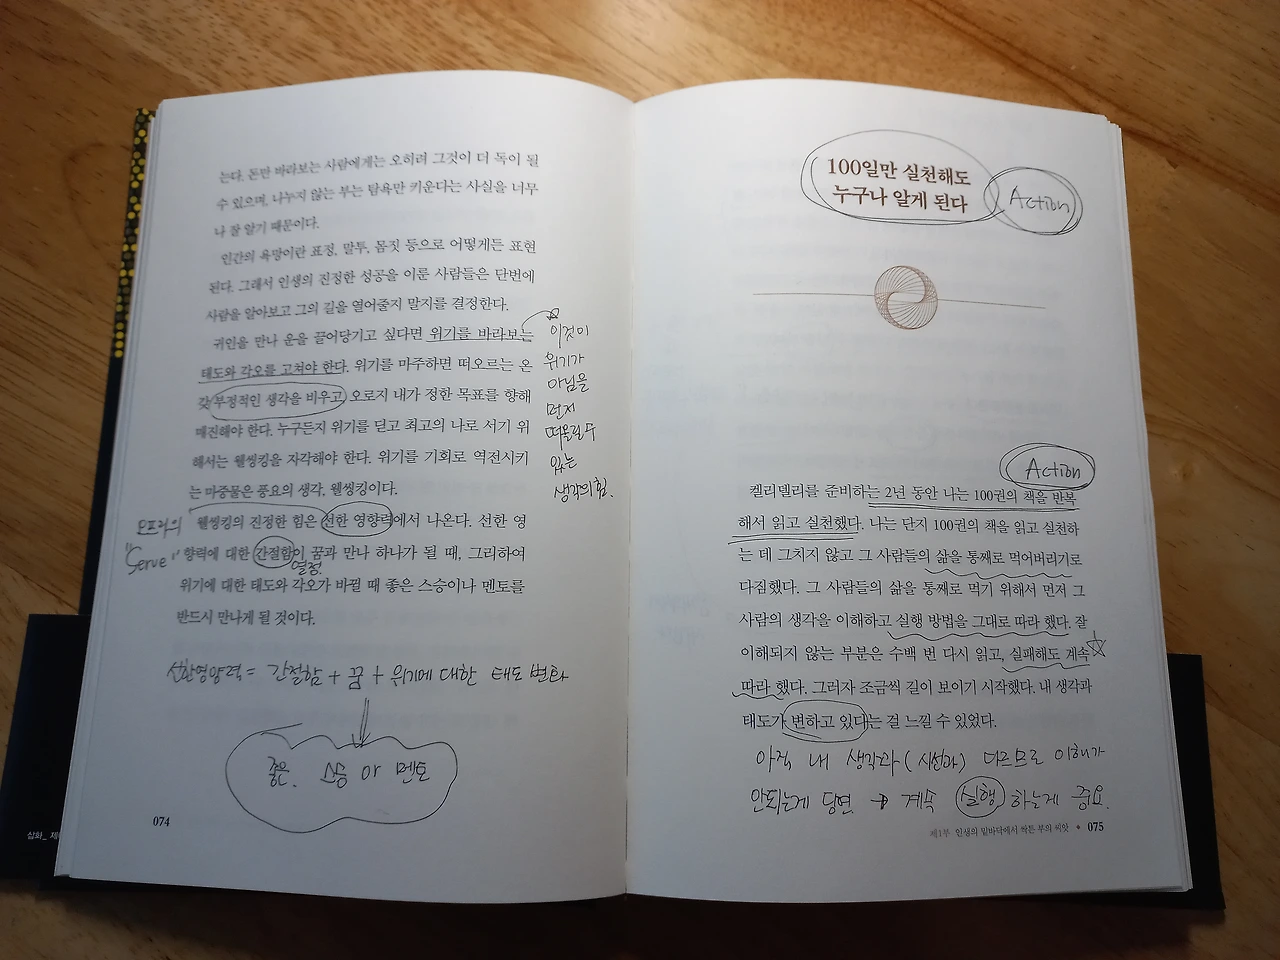 는다. 돈만 바라보는 사람에게는 오히려 그것이 더 독이 될
수 있으며, 나누지 않는 부는 탐욕만 키운다는 사실을 너무
나 잘 알기 때문이다.
인간의 욕망이란 표정, 말투, 몸짓 등으로 어떻게든 표현
된다. 그래서 인생의 진정한 성공을 이룬 사람들은 단번에
사람을 알아보고 그의 길을 열어줄지 말지를 결정한다.
귀인을 만나 운을 끌어당기고 싶다면 위기를 바라보는
태도와 각오를 고쳐야 한다. 위기를 마주하면 떠오르는 온
갖 부정적인 생각을 비우고, 오로지 내가 정한 목표를 향해
매진해야 한다. 누구든지 위기를 딛고 최고의 나로 서기 위
해서는 웰씽킹을 자각해야 한다. 위기를 기회로 역전시키
는 마중물은 풍요의 생각, 웰씽킹이다.
웰씽킹의 진정한 힘은 선한 영향력에서 나온다. 선한 영
향력에 대한 간절함이 꿈과 만나 하나가 될 때, 그리하여
위기에 대한 태도와 각오가 바뀔 때 좋은 스승이나 멘토를
반드시 만나게 될 것이다.
이것이
위기가
아님을
먼저
떠올릴 수
있는
생각의 힘.
오프라의
"Serve"
열정
선한영향력 = 간절함 + 꿈 + 위기에 대한 태도 변화
좋은 스승 or 멘토
074
삼화_ 제
100일만 실천해도
누구나 알게 된다
Action
Action
켈리델리를 준비하는 2년 동안 나는 100권의 책을 반복
해서 읽고 실천했다. 나는 단지 100권의 책을 읽고 실천하
는 데 그치지 않고 그 사람들의 삶을 통째로 먹어버리기로
다짐했다. 그 사람들의 삶을 통째로 먹기 위해서 먼저 그
사람의 생각을 이해하고 실행 방법을 그대로 따라 했다. 잘
이해되지 않는 부분은 수백 번 다시 읽고, 실패해도 계속
따라 했다. 그러자 조금씩 길이 보이기 시작했다. 내 생각과
태도가 변하고 있다는 걸 느낄 수 있었다.
아직 내 생각과 (시선과) 다르므로 이해가
안되는게 당연 → 계속 실행 하는게 중요.
제1부 인생의 밑바닥에서 싹튼 부의 씨앗 ◆ 075